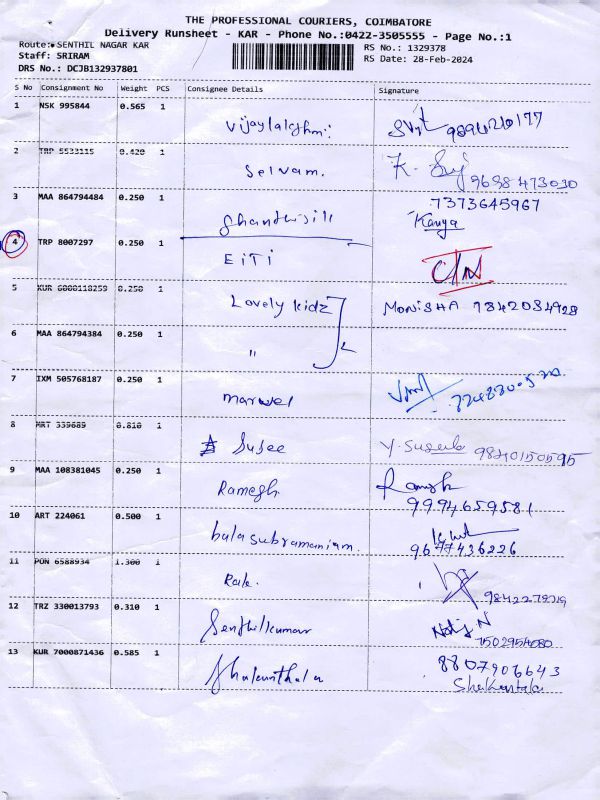 THE PROFESSIONAL COURIERS, COIMBATORE
Delivery Runsheet - KAR - Phone No.:0422-3505555 - Page No.:1
Route: SENTHIL NAGAR KAR RS No.: 1329378
Staff: SRIRAM RS Date: 28-Feb-2024
DRS No.: DCJB132937801
S No Consignment No Weight PCS Consignee Details Signature
1 NSK 995844 0.565 1
Vijaylakshmi 9894210177
2 TRP 5533115 0.420 1
Selvam. 9698473030
3 MAA 864794484 0.250 1 7373645967
Shanthisill Kanya
4 TRP 8007297 0.250 1
EiTi C/N
5 KUR 6000118259 0.250 1
Lovely kidz MONISHA 9842034928
6 MAA 864794384 0.250 1
"
7 IXM 505768187 0.250 1
marvel
8 MRT 339689 0.810 1
Susee 9840150595
9 MAA 108381045 0.250 1
Ramesh Ramesh
9994659581
10 ART 224061 0.500 1
balasubramaniam. 9647436226
11 PON 6588934 1.300 1
12 TRZ 330013793 0.310 1
Senthilkumar
7502954080
13 KUR 7000871436 0.585 1
8807906643
Shakunthala Shakuntala